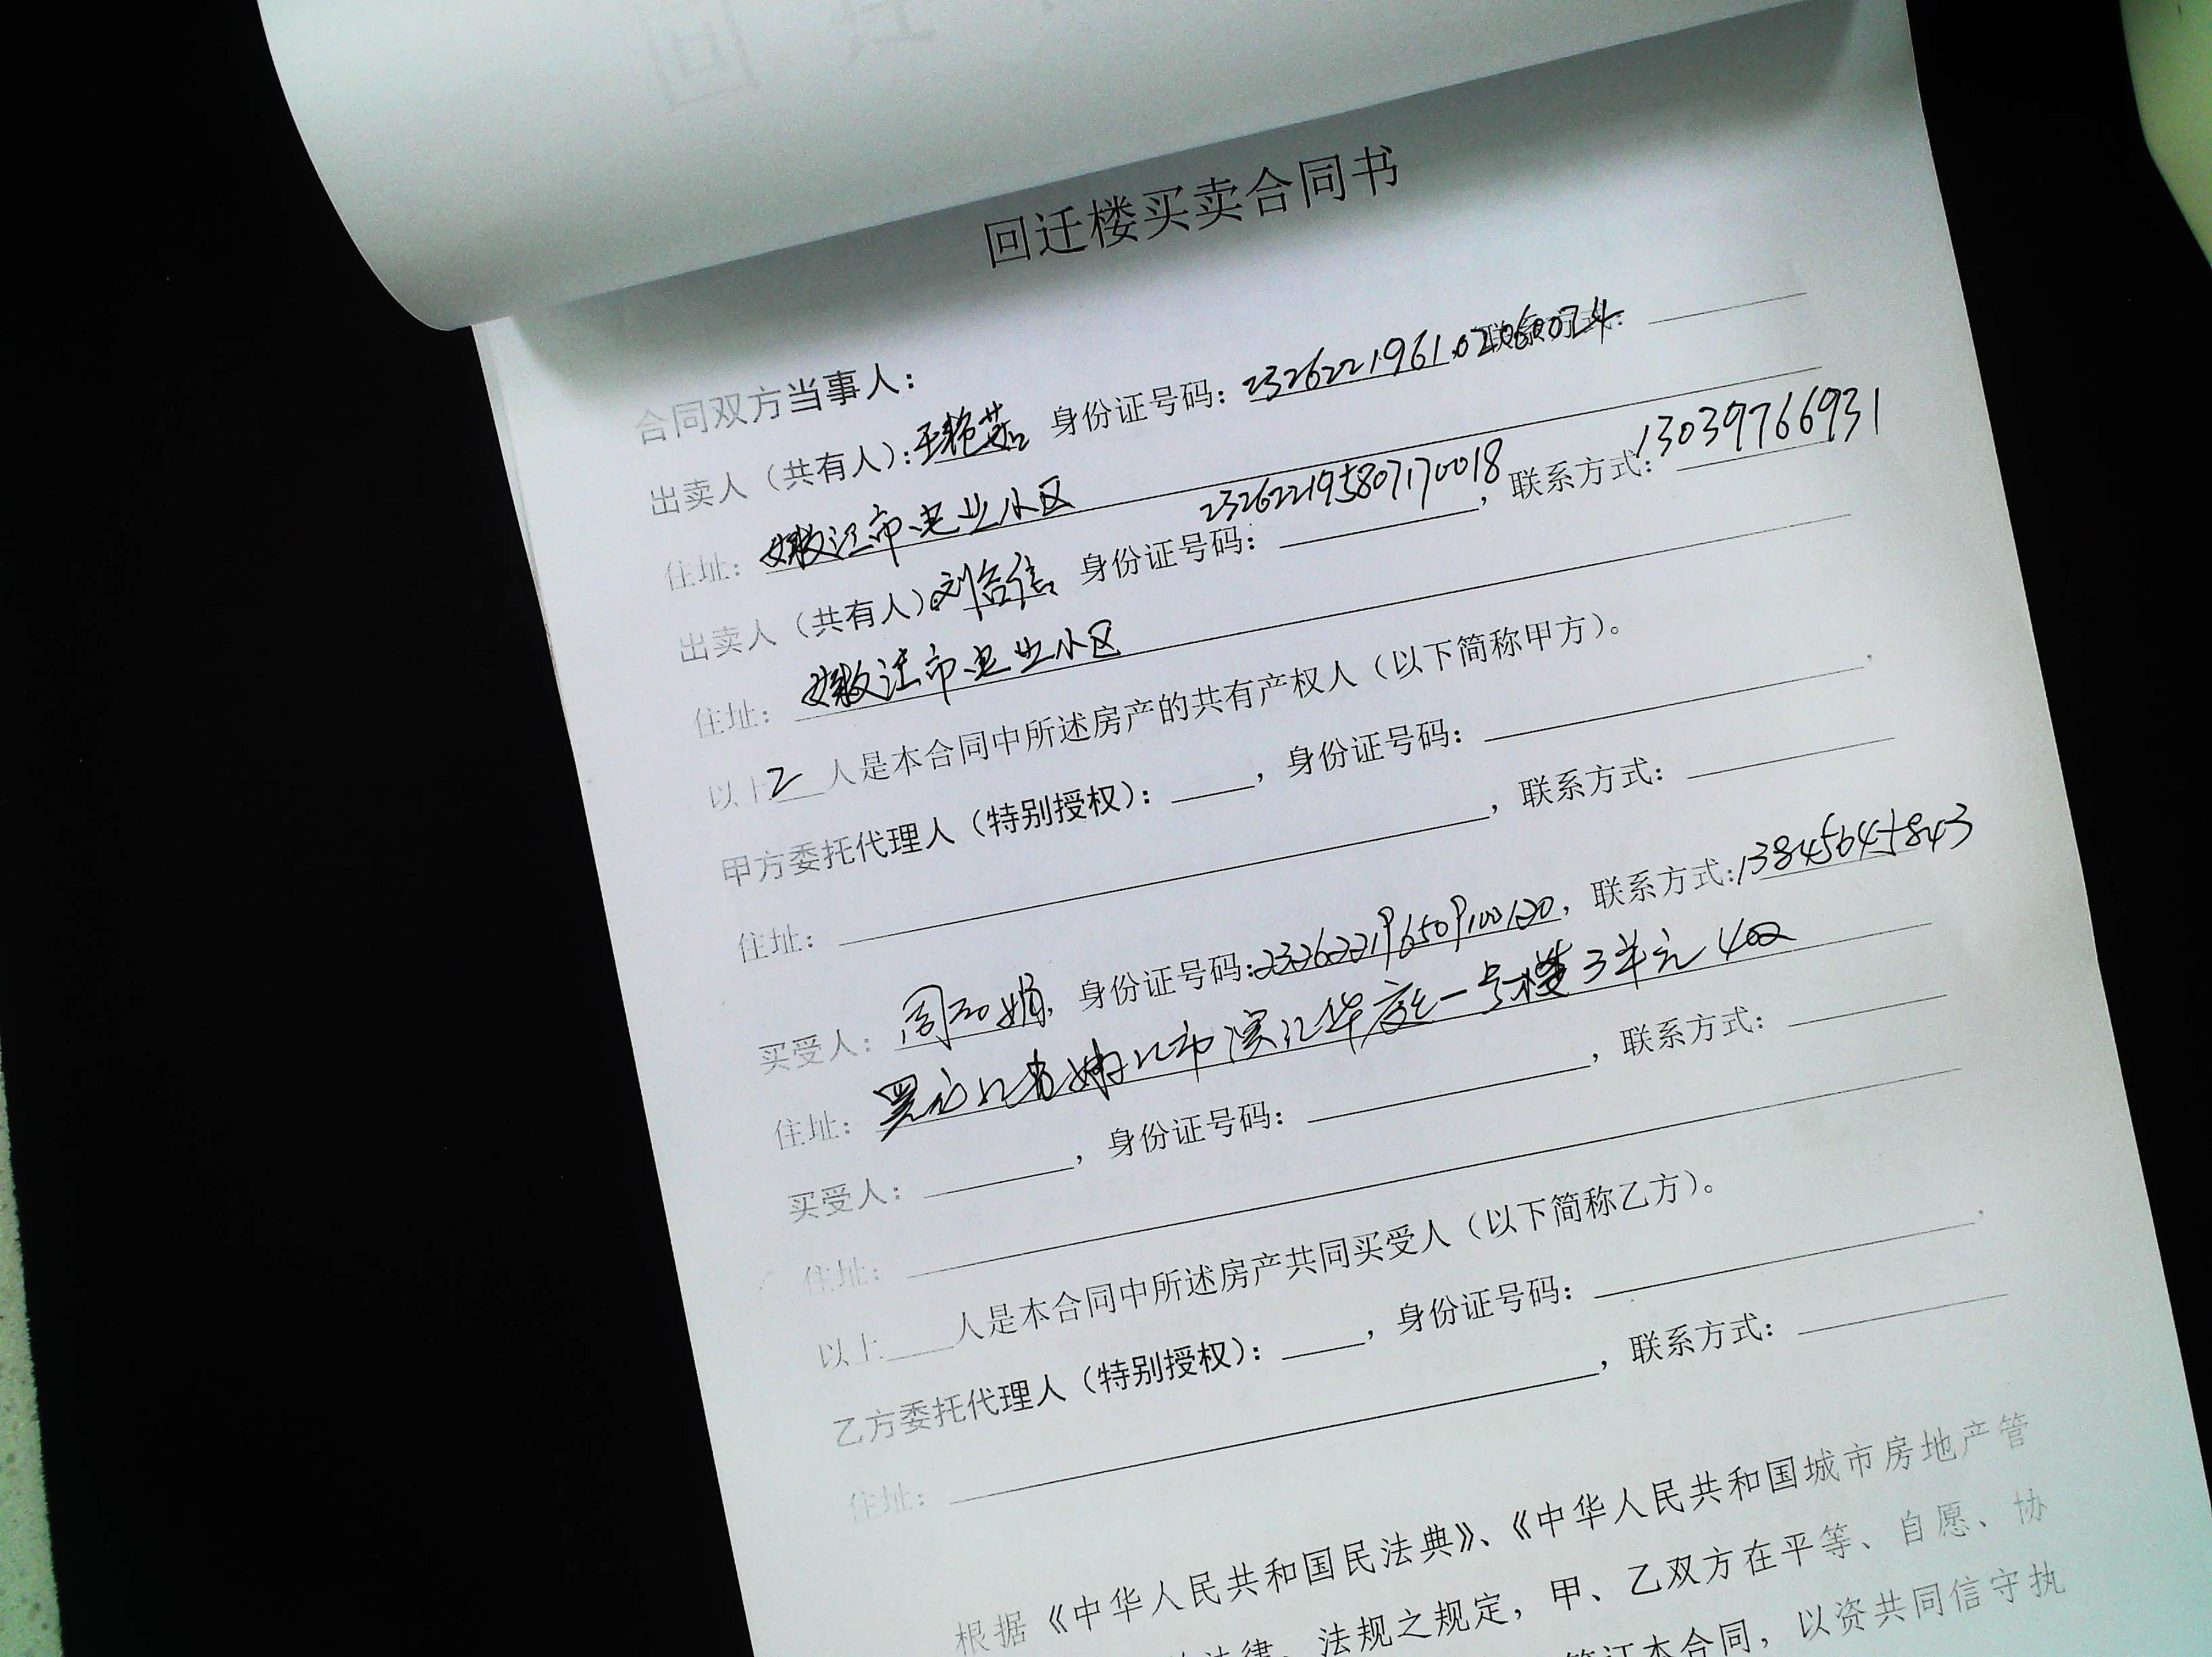 回迁楼买卖合同书
合同双方当事人：
出卖人（共有人）：王艳茹 身份证号码：232622196102060024 联系方式：
住址：嫩江市电业小区
出卖人（共有人）刘合信 身份证号码：232622195807170018，联系方式：13039766931
住址：嫩江市电业小区
以上2人是本合同中所述房产的共有产权人（以下简称甲方）。
甲方委托代理人（特别授权）：，身份证号码：，
住址：，联系方式：
买受人：周 娟，身份证号码：232622196509100120，联系方式：13845645843
住址：黑龙江省嫩江市滨江华庭一号楼3单元402
买受人：，身份证号码：，联系方式：
住址：
以上人是本合同中所述房产共同买受人（以下简称乙方）。
乙方委托代理人（特别授权）：，身份证号码：，
住址：，联系方式：
根据《中华人民共和国民法典》、《中华人民共和国城市房地产管
法律、法规之规定，甲、乙双方在平等、自愿、协
签订本合同，以资共同信守执